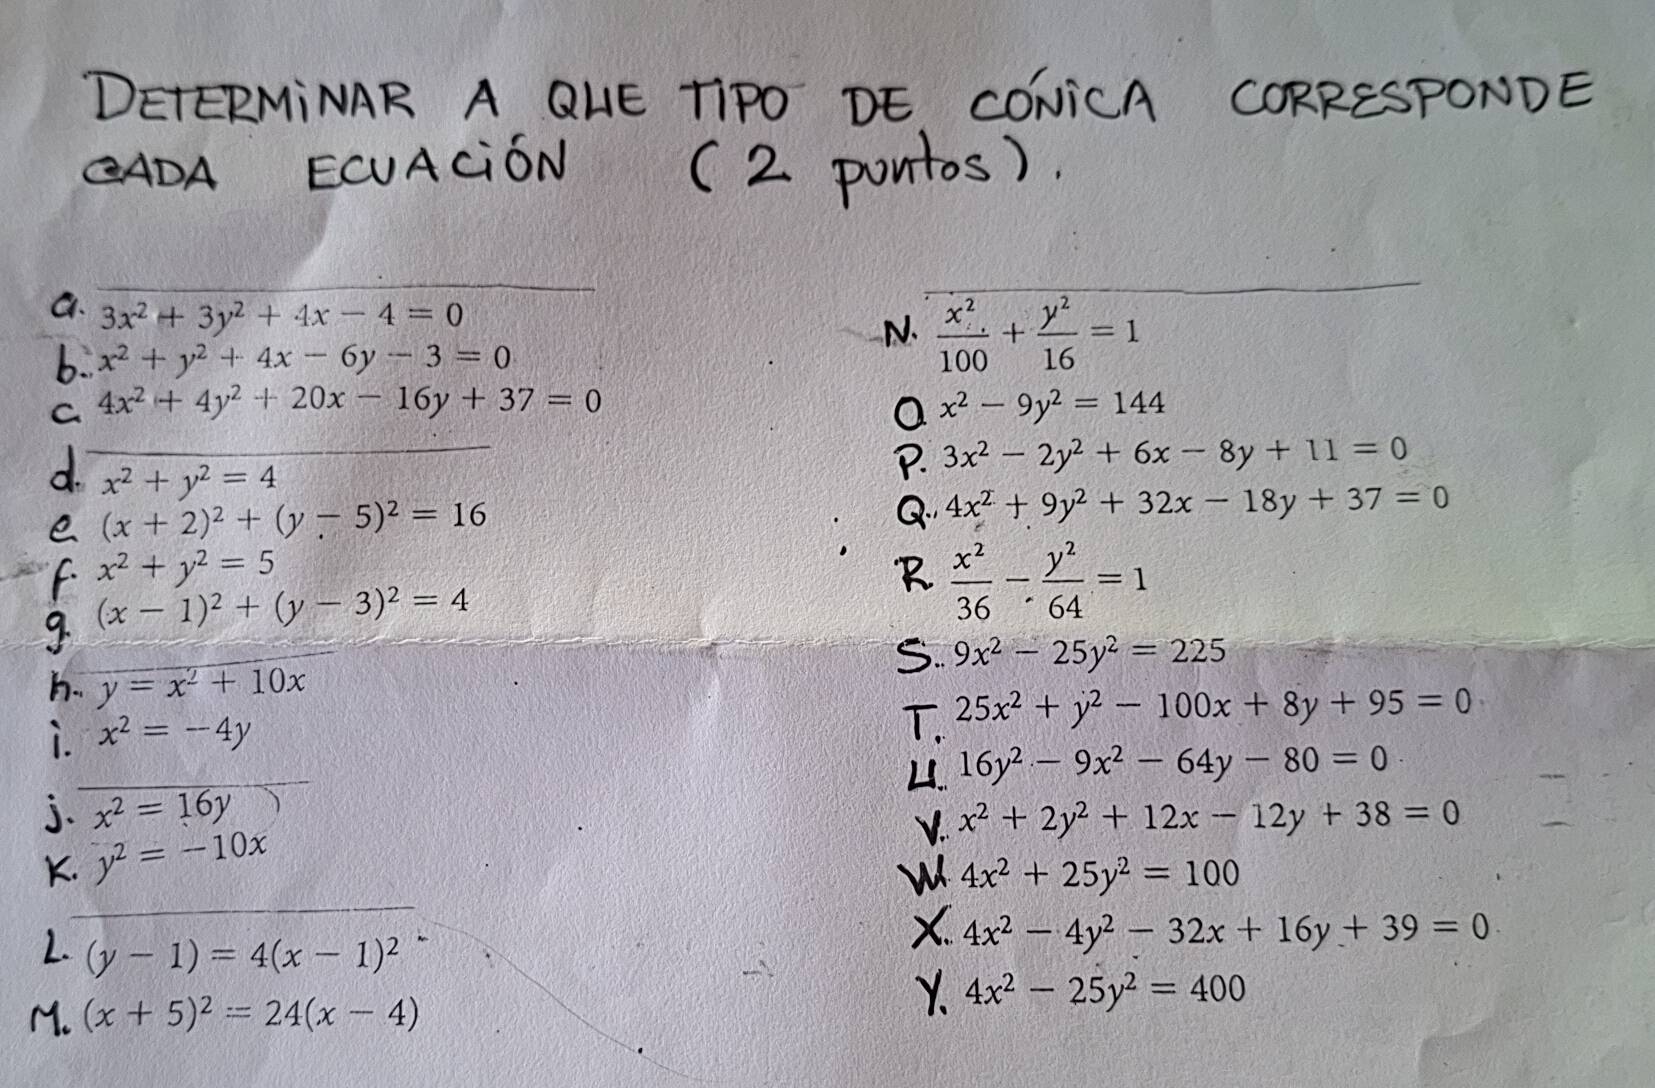 DETERMINAR A QUE TIPO DE CÓNICA CORRESPONDE
CADA ECUACIÓN (2 puntos).
a. 3x² + 3y² + 4x − 4 = 0
b. x² + y² + 4x − 6y − 3 = 0
c 4x² + 4y² + 20x − 16y + 37 = 0
d. x² + y² = 4
e (x + 2)² + (y − 5)² = 16
f. x² + y² = 5
g. (x − 1)² + (y − 3)² = 4
h. y = x² + 10x
i. x² = −4y
j. x² = 16y
K. y² = −10x
L. (y − 1) = 4(x − 1)²
M. (x + 5)² = 24(x − 4)
N. x²/100 + y²/16 = 1
O x² − 9y² = 144
P. 3x² − 2y² + 6x − 8y + 11 = 0
Q. 4x² + 9y² + 32x − 18y + 37 = 0
R. x²/36 − y²/64 = 1
S. 9x² − 25y² = 225
T. 25x² + y² − 100x + 8y + 95 = 0
U. 16y² − 9x² − 64y − 80 = 0
V. x² + 2y² + 12x − 12y + 38 = 0
W. 4x² + 25y² = 100
X. 4x² − 4y² − 32x + 16y + 39 = 0
Y. 4x² − 25y² = 400